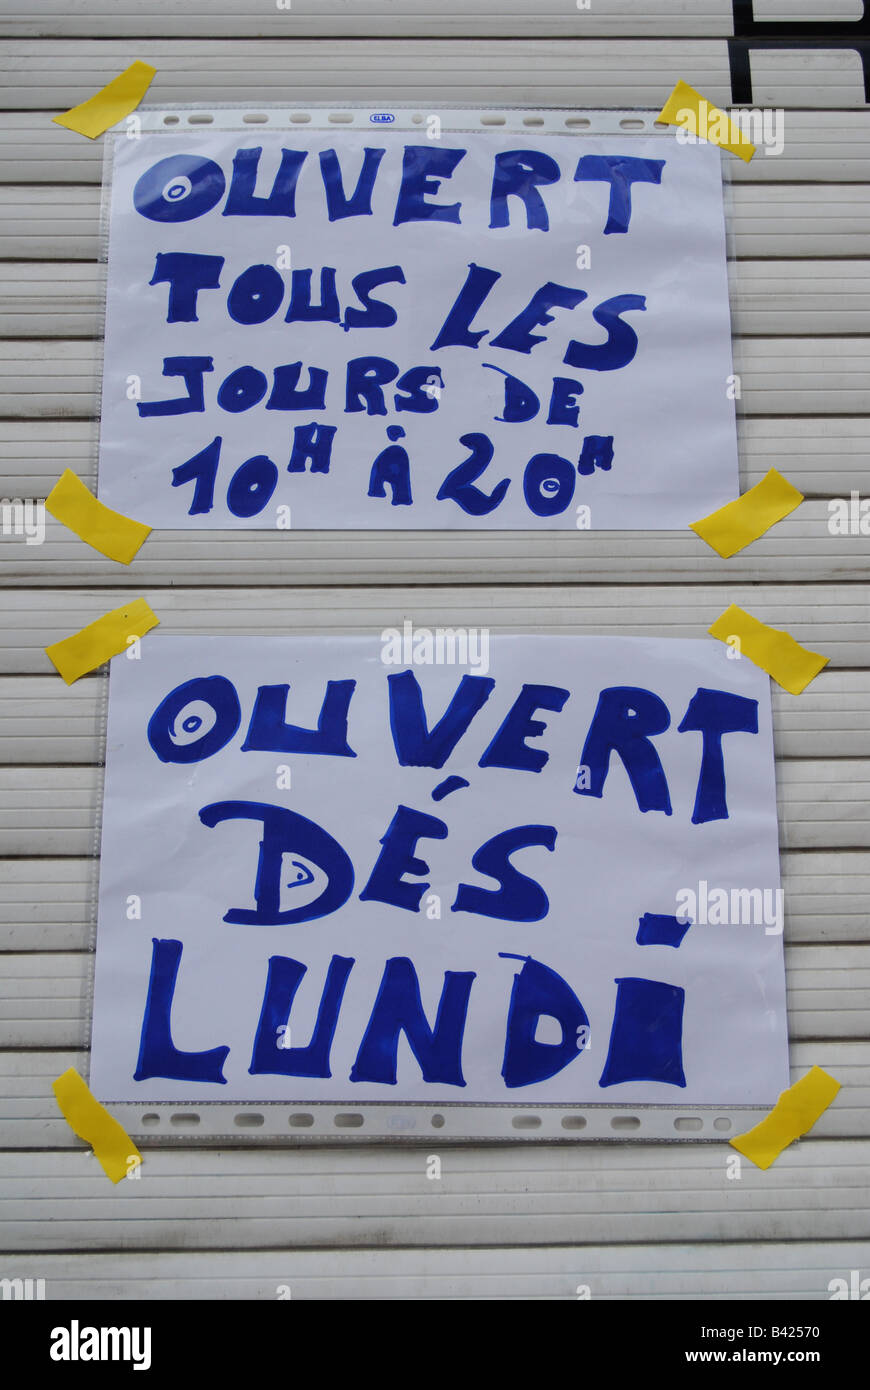 ELBA
OUVERT
TOUS LES
JOURS DE
10H À 20H
OUVERT
DÉS
LUNDI
alamy
Image ID: B42570
www.alamy.com